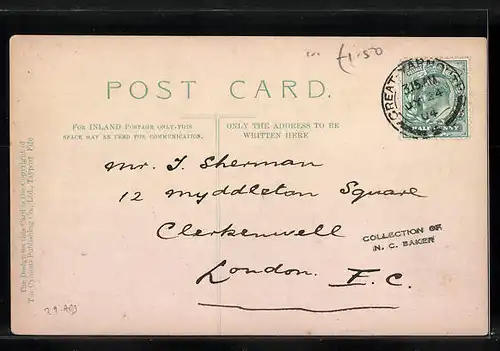 £1.50
POST CARD.
GREAT YARMOUTH
3.15 PM
04
HALFPENNY
FOR INLAND POSTAGE ONLY THIS
SPACE MAY BE USED FOR COMMUNICATION.
ONLY THE ADDRESS TO BE
WRITTEN HERE
Mr. J. Sherman
12 Myddleton Square
Clerkenwell
London. E.C.
COLLECTION OF
N. C. BAKER
The Design on this Card is the Copyright of
The Cynicus Publishing Co., Ltd., Tayport Fife